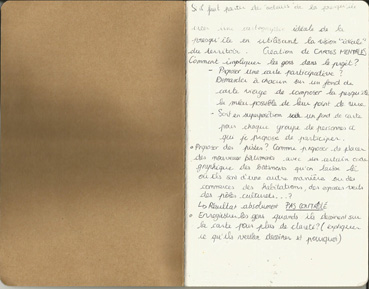 Si il faut partir des acteurs de la presqu'île
créer une cartographie idéale de la
presqu'île en utilisant la vision "idéale"
du territoire. Création de CARTES MENTALES
Comment impliquer les gens dans le projet?
- Proposer une carte participative?
Demander à chacun sur un fond de
carte vierge de composer la presqu'île
la mieux possible de leur point de vue.
- Soit en superposition sur un fond de carte
pour chaque groupe de personnes à
qui je propose de participer.
• Proposer des pôles? Comme proposer de placer
des nouveaux bâtiments avec un certain code
graphique des bâtiments qui
où ils sont d'une autre manière ou des
commerces, des habitations, des espaces verts
des pôles culturels...?
↳ Résultat absolument PAS CONTRÔLÉ
• Enregistrer les gens quand ils dessinent sur
la carte pour plus de clarté? (expliquer
ce qu'ils veulent dessiner et pourquoi)